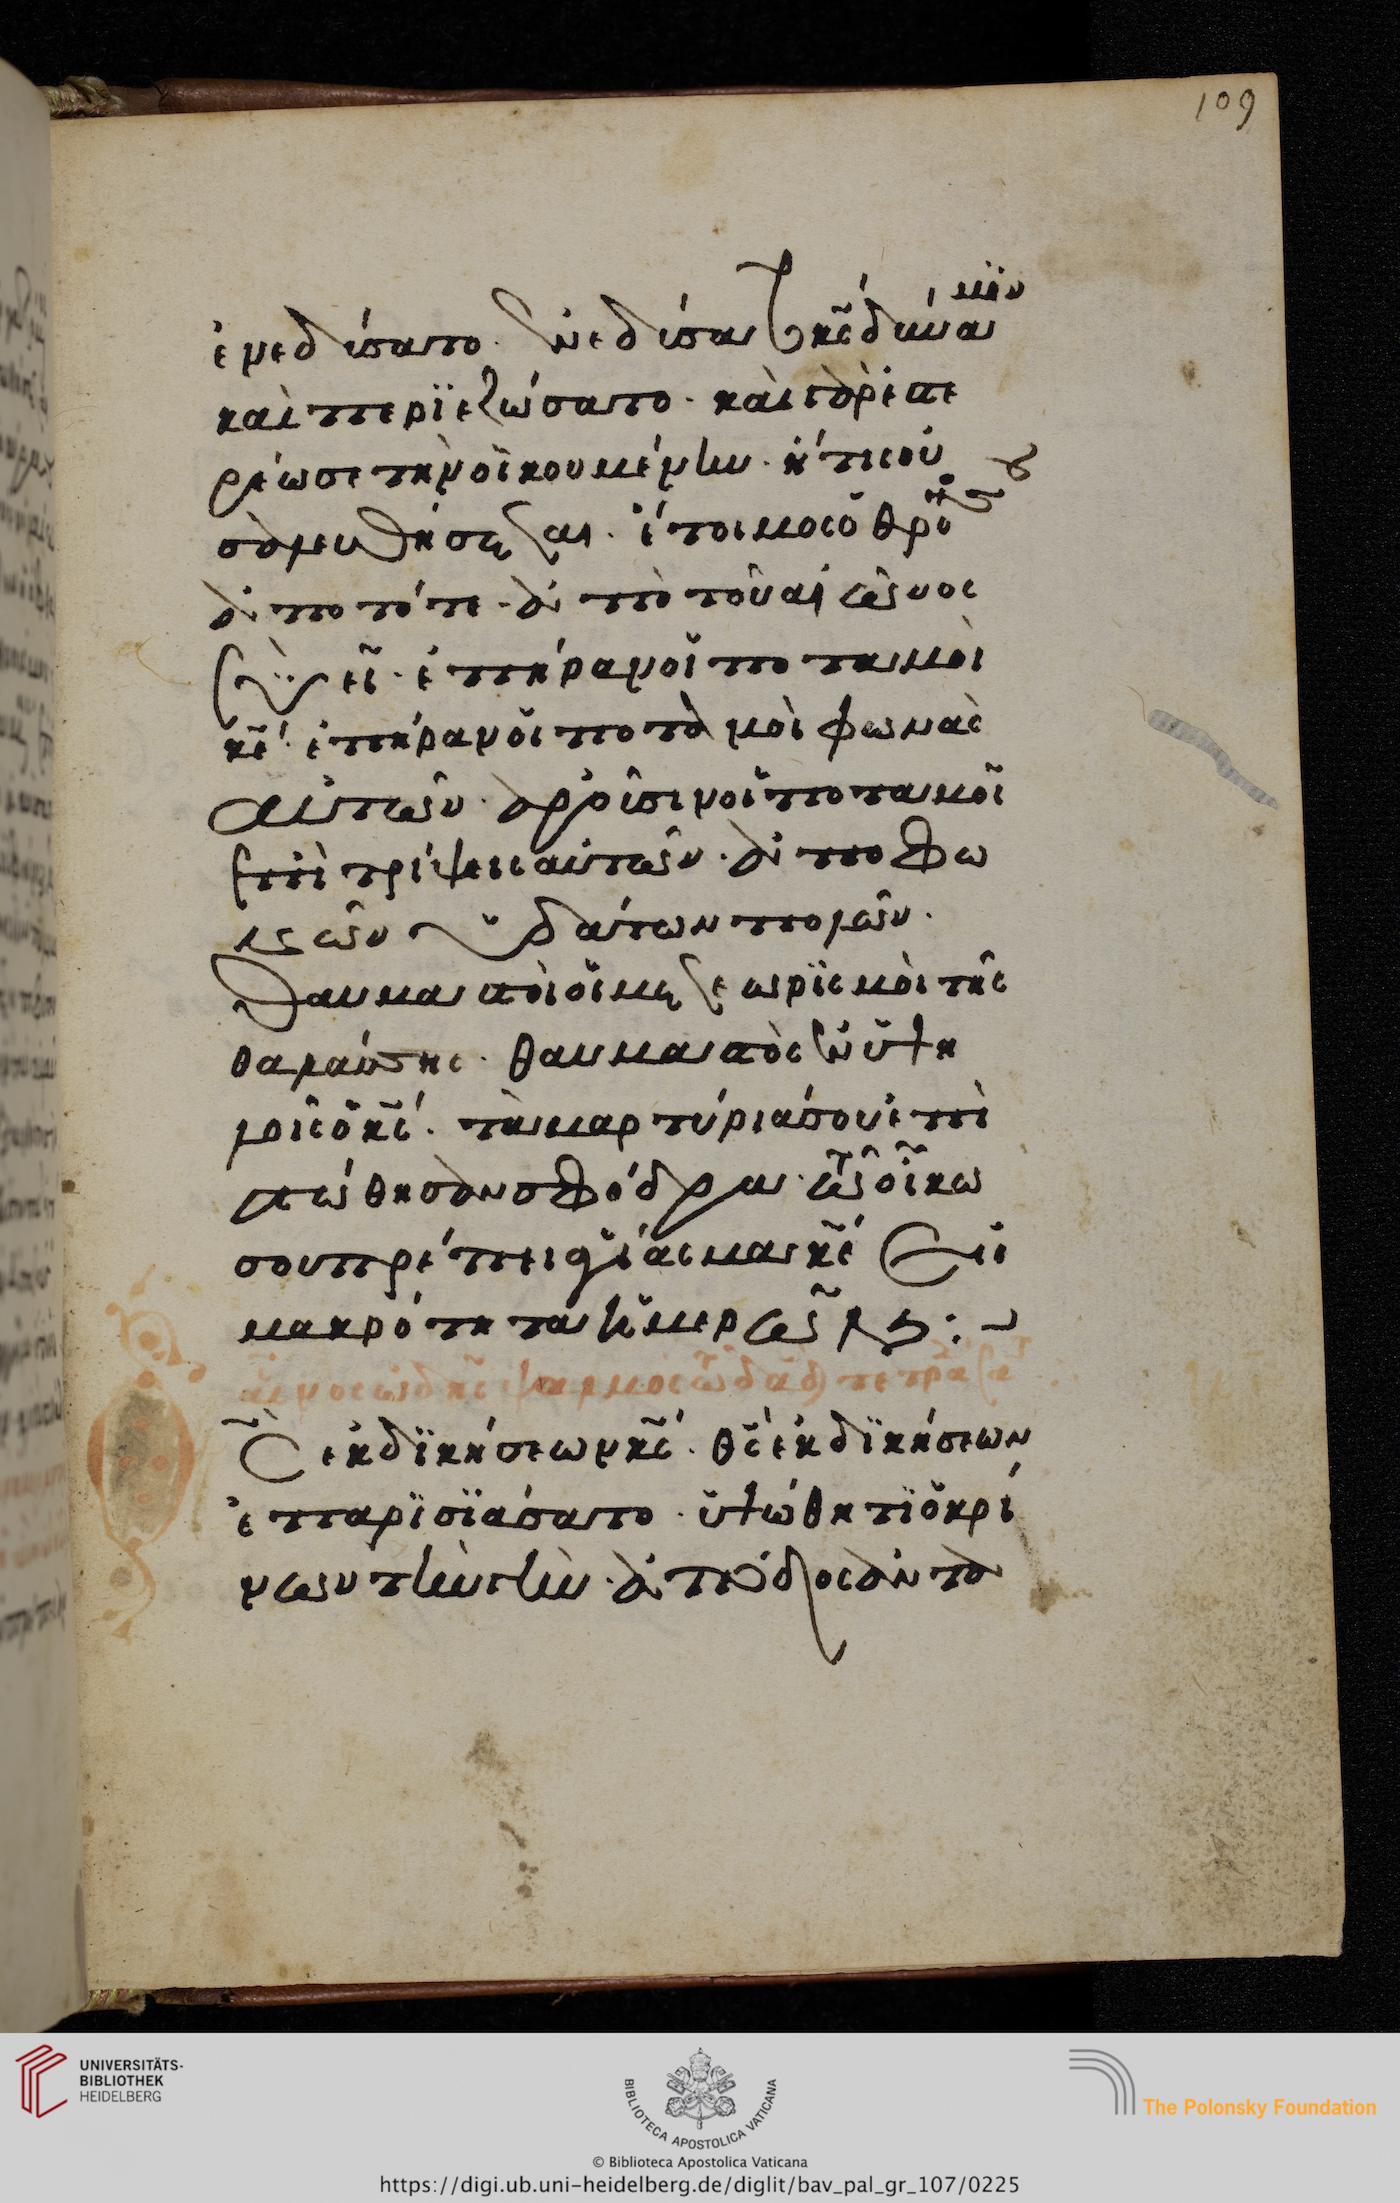 109
ἐνεδύσατο. ἐνεδύσατο κς δύναμιν
καὶ περϊεζώσατο. καὶ ἐστερέ
ρέωσε τὴν οἰκουμένην. ἥτις οὐ
σαλευθήσεται. ἕτοιμος ὁ θρόνος σου
ἀπο τότε. ἀπὸ τοῦ αἰῶνος
σὺ εἶ. ἐπῆραν οἱ ποταμοὶ
κε. ἐπῆραν οἱ ποταμοὶ φωνὰς
αὐτῶν. ἀροῦσιν οἱ ποταμοὶ
ἐπιτρίψεις αὐτῶν. ἀπο φω
νῶν ὑδάτων πολλῶν.
θαυμαστοὶ οἱ μετεωρϊσμοὶ τῆς
θαλάσσης. θαυμαστὸς ἐν ὑψη
λοῖς ὁ κς. τὰ μαρτύριά σου ἐπι
στώθησαν σφόδρα. τῶ οἴκω
σου πρέπει ἁγίασμα κε εἰ
μακρότητα ἡμερῶν
Θς ἐκδϊκήσεων κς. θς ἐκδϊκήσεων
ἐπαρϊσϊάσατο. ὑψώθητϊ ὁ κρί
νων τὴν γῆν. ἀπόδος ἀντα
UNIVERSITÄTS-
BIBLIOTHEK
HEIDELBERG
BIBLIOTECA APOSTOLICA VATICANA
The Polonsky Foundation
© Biblioteca Apostolica Vaticana
https://digi.ub.uni-heidelberg.de/diglit/bav_pal_gr_107/0225